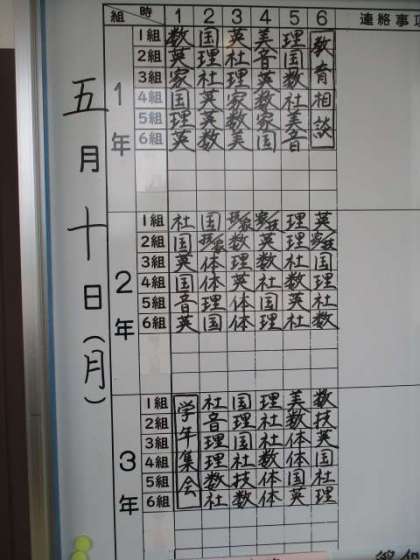 組 時 1 2 3 4 5 6 連絡事
五月十日(月)
1年
1組 数 国 英 美 理 教育相談
2組 英 理 社 音 国
3組 家 社 理 英 数
4組 国 英 家 数 社
5組 理 英 数 家 美
6組 英 数 美 国 音
2年
1組 社 国 技/家 家/技 理 英
2組 国 技/家 数 英 理 家/技
3組 英 体 理 数 社 国
4組 国 体 英 社 数 理
5組 音 理 体 国 英 社
6組 英 国 体 理 社 数
3年
1組 学年集会 社 国 理 美 数
2組 音 理 社 数 技
3組 理 国 社 体 英
4組 理 社 数 体 国
5組 数 技 体 国 社
6組 社 数 体 英 理